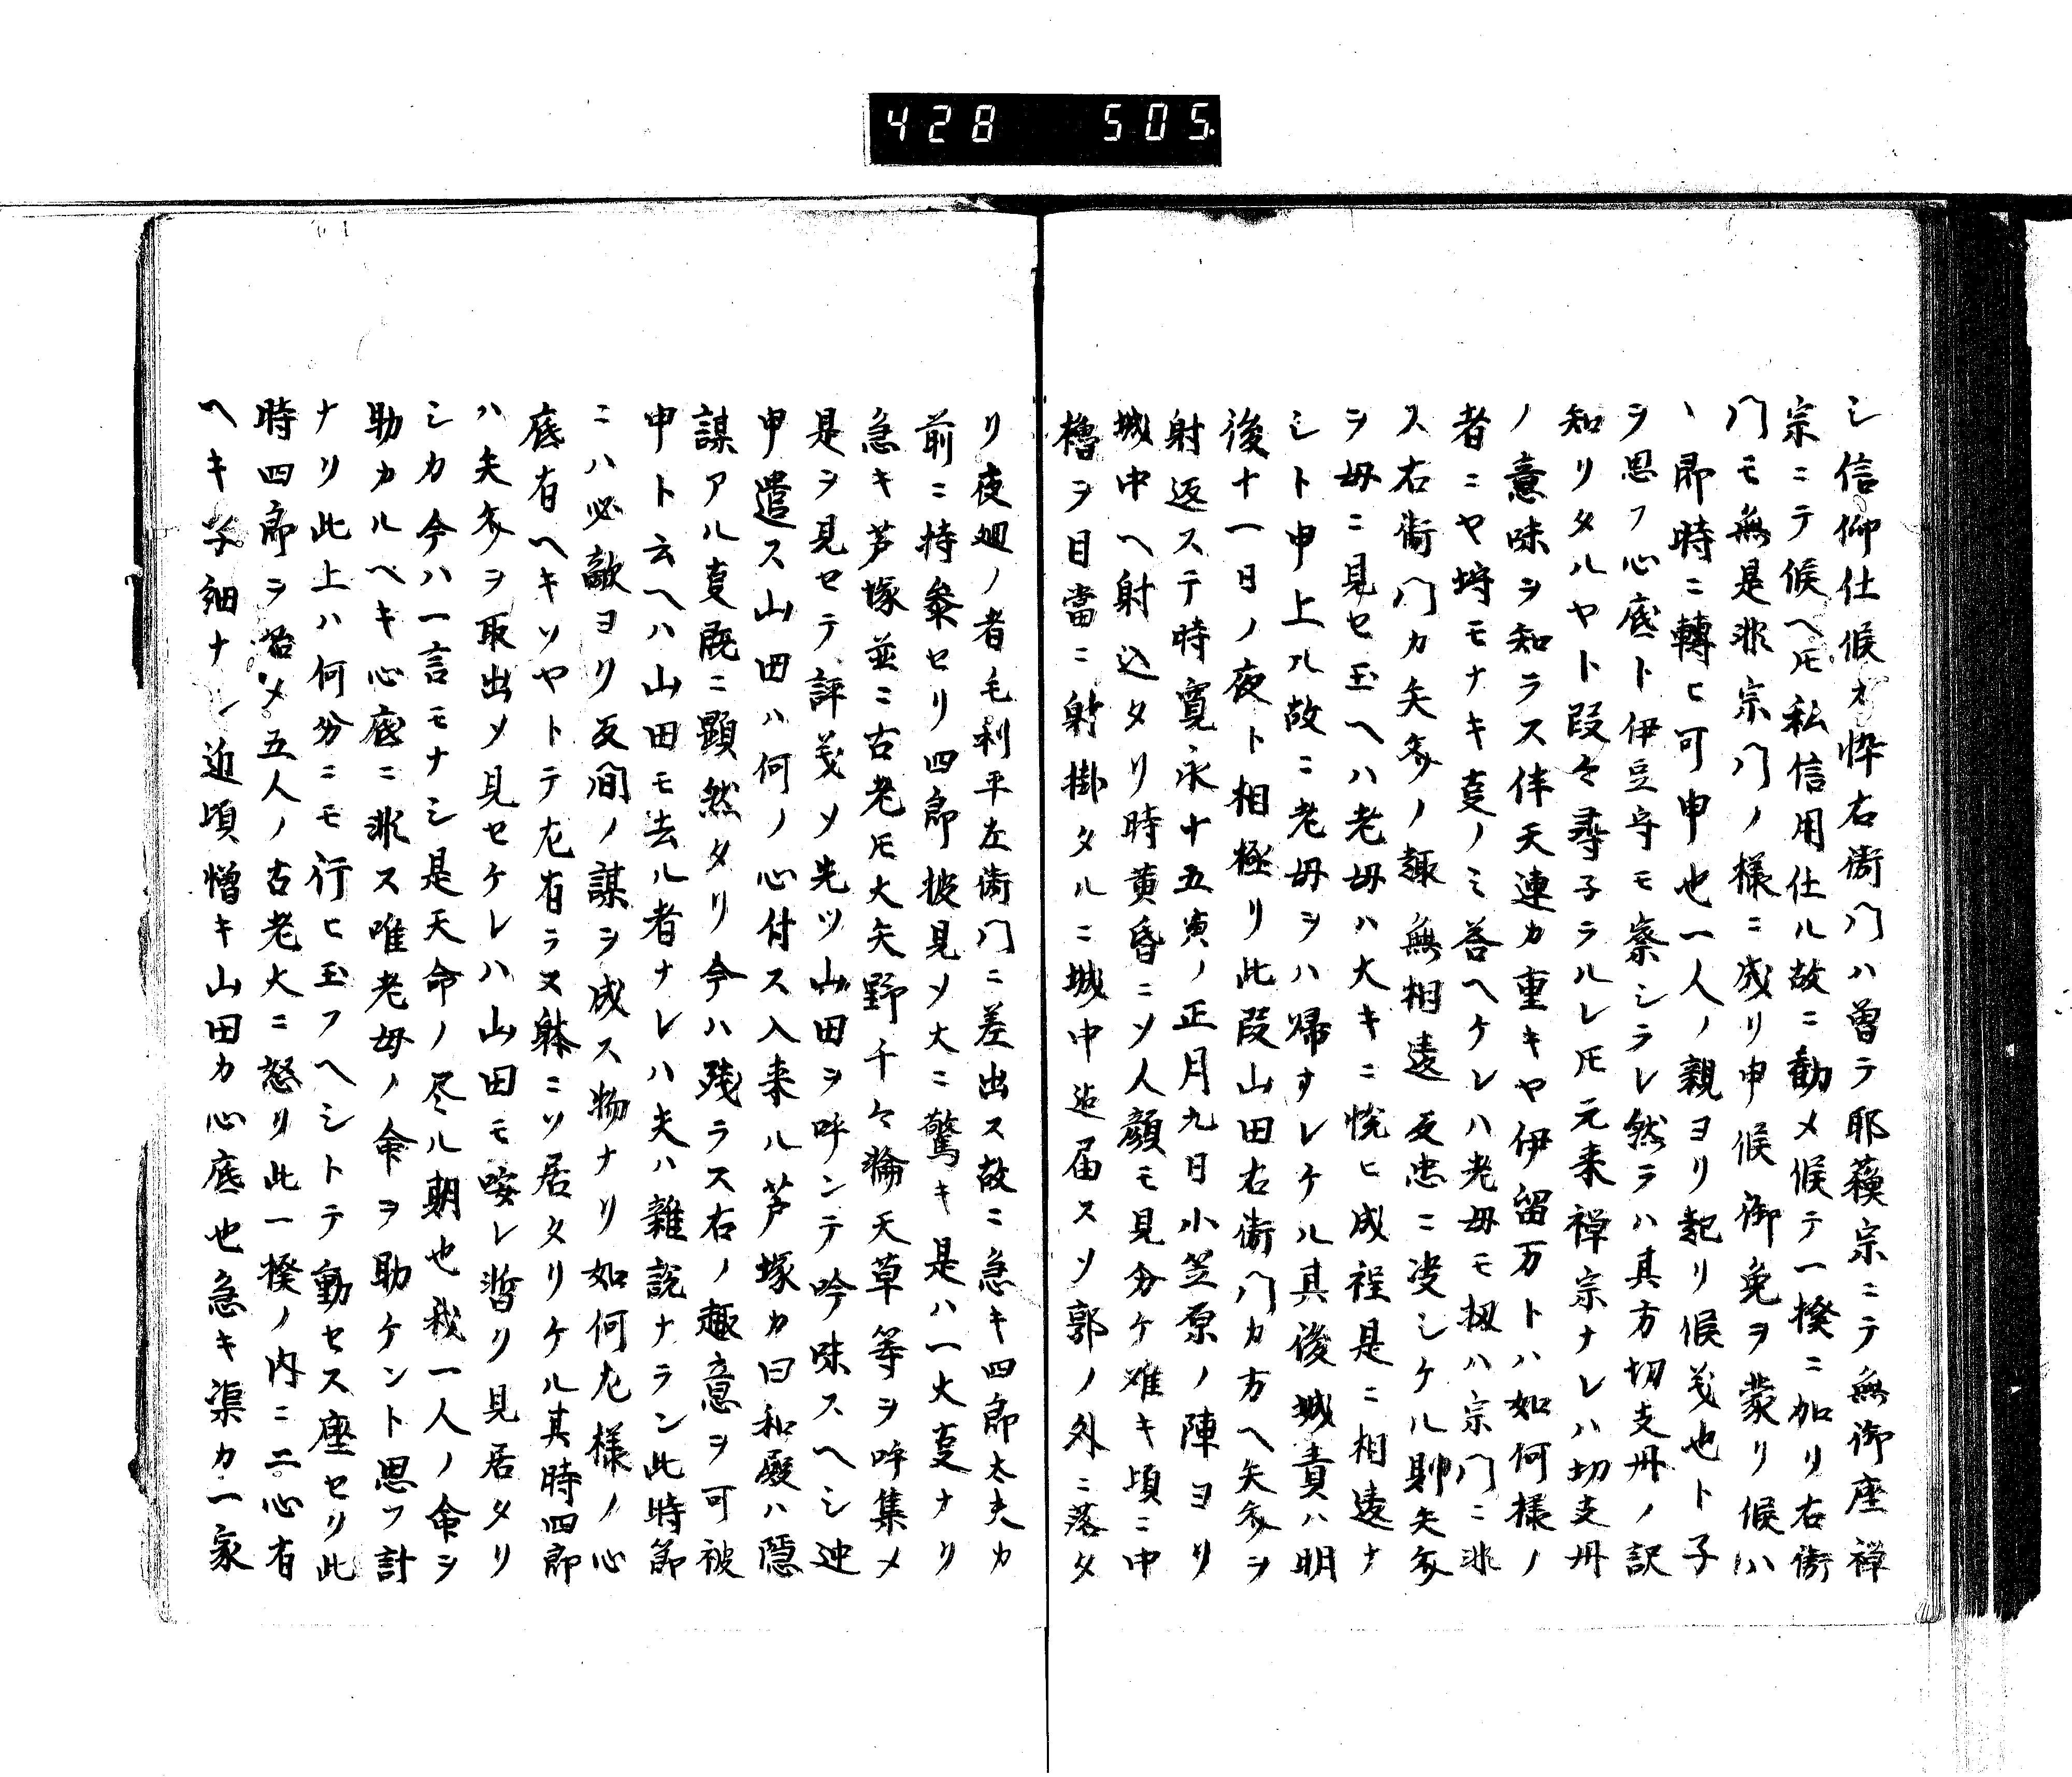 428 505
シ信仰仕候ヘ𪜈忰右衛門ハ曽テ耶蘓宗ニテ無御座禅
宗ニテ候ヘ𪜈私信用仕ル故ニ勧メ候テ一揆ニ加リ右衛
門モ無是非宗門ノ様ニ成リ申候御免ヲ蒙リ候ハ
ヽ即時ニ轉ヒ可申也一人ノ親ヨリ起リ候㐧也ト子
ヲ思フ心底ト伊豆守モ察シラレ然ラハ其方切支丹ノ訳
知リタルヤト段々尋子ラルレ𪜈元来禅宗ナレハ切支丹
ノ意味ヲ知ラス伴天連カ重キヤ伊留万トハ如何様ノ
者ニヤ埒モナキ㕝ノミ答ヘケレハ老母モ扨ハ宗門ニ非
ス右衛門カ矢文ノ趣無相違反忠ニ决シケル則矢文
ヲ母ニ見セ玉ヘハ老母ハ大キニ悦ヒ成程是ニ相違ナ
シト申上ル故ニ老母ヲハ帰サレケル其後城責ハ明
後十一日ノ夜ト相極リ此段山田右衛門カ方ヘ矢文ヲ
射返ス于時寛永十五寅ノ正月九日小笠原ノ陣ヨリ
城中ヘ射込タリ時黄昏ニソ人顔モ見分ケ难キ頃ニ中
櫓ヲ目當ニ射掛タルニ城中迠届スソ郭ノ外ニ落タ
リ夜廻ノ者毛利平左衛門ニ差出ス故ニ急キ四郎太夫カ
前ニ持参セリ四郎披見ソ大ニ驚キ是ハ一大㕝ナリ
急キ芦塚並ニ古老𪜈大矢野千々輪天草等ヲ呼集メ
是ヲ見セテ評㐧ソ先ツ山田ヲ呼ンテ吟味スヘシ迚
申遣ス山田ハ何ノ心付ス入来ル芦塚カ曰和殿ハ隠
謀アル㕝既ニ顕然タリ今ハ残ラス右ノ趣意ヲ可被
申ト云ヘハ山田モ去ル者ナレハ夫ハ雑説ナラン此時節
ニハ必敵ヨリ反間ノ謀ヲ成ス物ナリ如何尤様ノ心
底有ヘキソヤトテ尤有ラヌ躰ニソ居タリケル其時四郎
ハ矢文ヲ取出ソ見セケレハ山田モ唖レ誓リ見居タリ
シカ今ハ一言モナシ是天命ノ尽ル期也我一人ノ命ヲ
助カルベキ心底ニ非ス唯老母ノ命ヲ助ケント思フ計
ナリ此上ハ何分ニモ行ヒ玉フヘシトテ動セス座セリ此
時四郎ヲ始メ五人ノ古老大ニ怒リ此一揆ノ内ニ二心有
ヘキ子細ナシ近頃憎キ山田カ心底也急キ渠カ一家